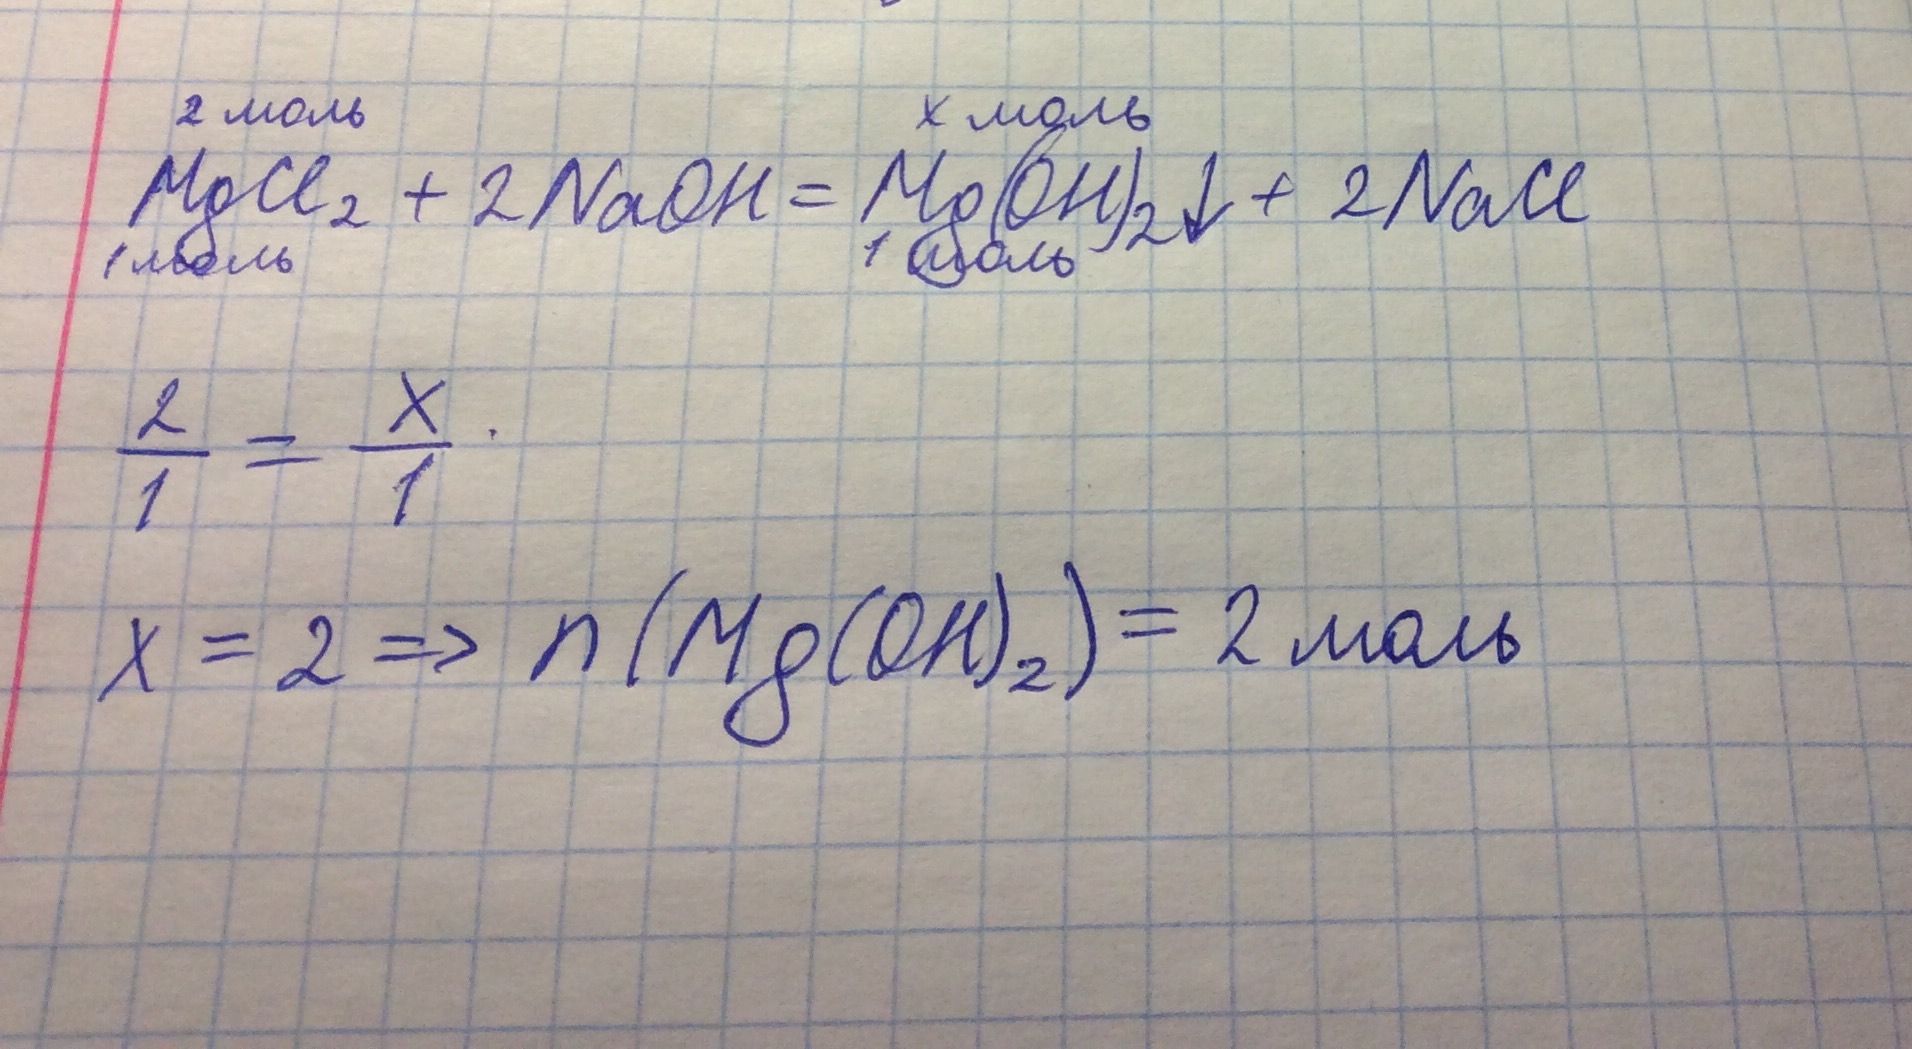 2 моль x моль
MgCl₂ + 2NaOH = Mg(OH)₂↓ + 2NaCl
1 моль 1 моль
2/1 = x/1
x = 2 => n(Mg(OH)₂) = 2 моль